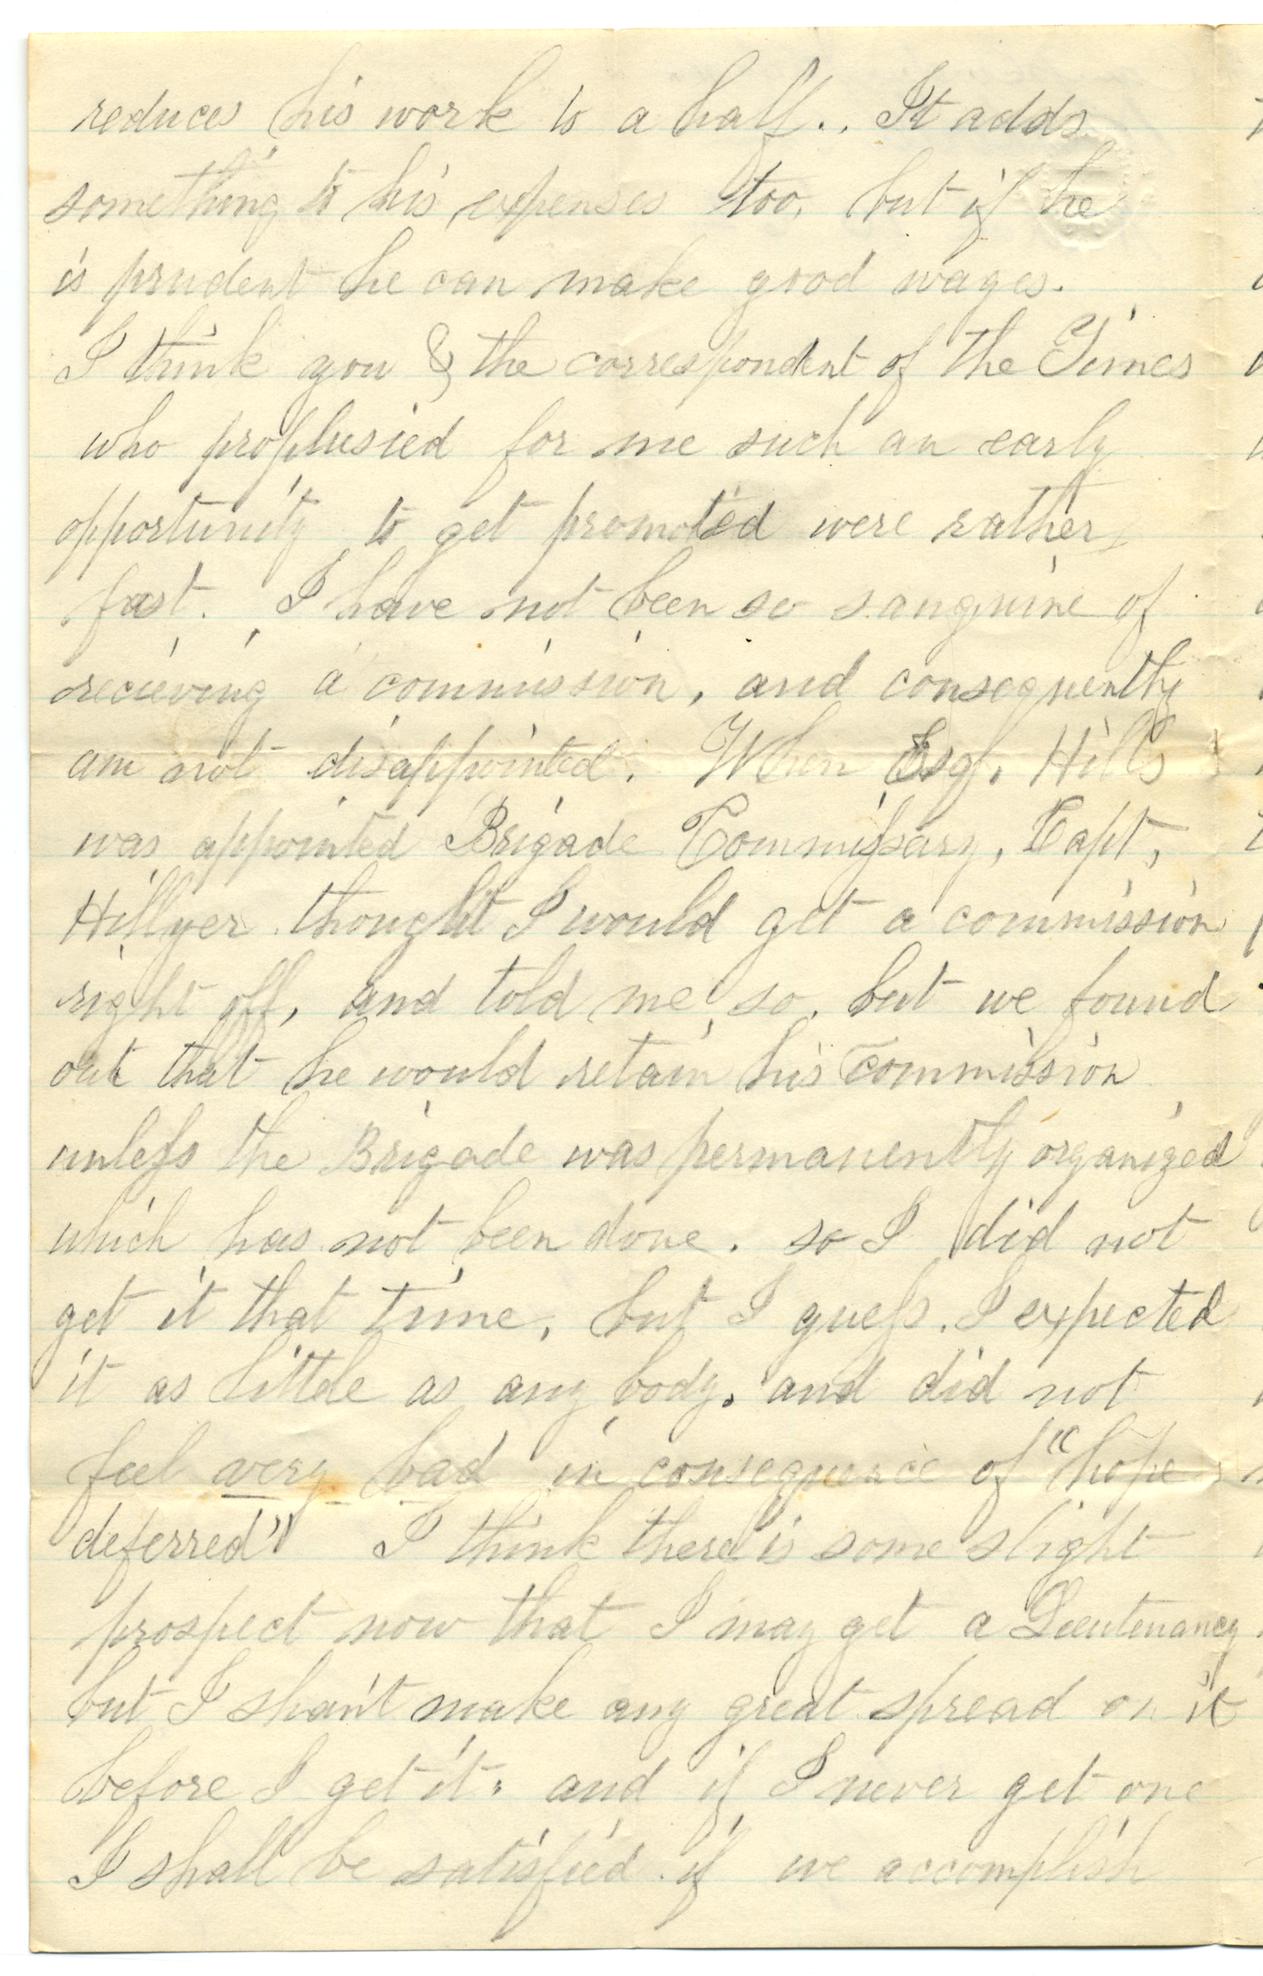 reduces his work to a half.. It adds
something to his expenses too, but if he
is prudent he can make good wages.
I think you & the correspondent of the Times
who prophesied for me such an early
opportunity to get promoted were rather
fast. I have not been so sanguine of
recieving a commission, and consequently
am not disappointed. When Esq. Hills
was appointed Brigade Commissary, Capt,
Hillyer thought I would get a commission
right off, and told me so, but we found
out that he would retain his commission
unless the Brigade was permanently organized
which has not been done. so I did not
get it that time, but I guess I expected
it as little as any body, and did not
feel very bad in consequence of "hope
deferred" I think there is some slight
prospect now that I may get a Lieutenancy
but I shan't make any great spread on it
before I get it: and if I never get one
I shall be satisfied if we accomplish